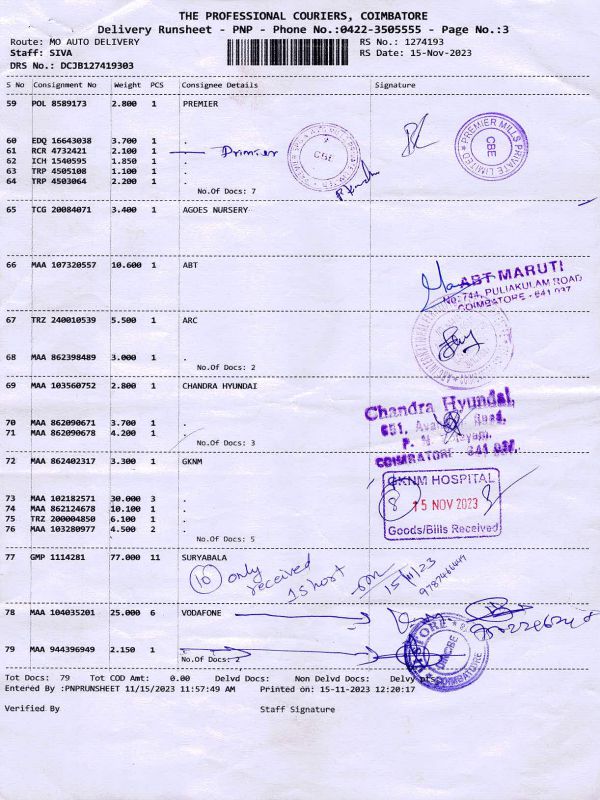 THE PROFESSIONAL COURIERS, COIMBATORE
Delivery Runsheet - PNP - Phone No.:0422-3505555 - Page No.:3
Route: MO AUTO DELIVERY RS No.: 1274193
Staff: SIVA RS Date: 15-Nov-2023
DRS No.: DCJB127419303
S No Consignment No Weight PCS Consignee Details Signature
59 POL 8589173 2.800 1 PREMIER
PREMIER MILLS PRIVATE LIMITED
CBE
60 EDQ 16643038 3.700 1 .
61 RCR 4732421 2.100 1 Premier
CBE
62 ICH 1540595 1.850 1 .
63 TRP 4505108 1.100 1 .
64 TRP 4503064 2.200 1 .
No.Of Docs: 7
65 TCG 20084071 3.400 1 AGOES NURSERY
66 MAA 107320557 10.600 1 ABT
ABT MARUTI
No: 744, PULIAKULAM ROAD
COIMBATORE - 641 037
67 TRZ 240010539 5.500 1 ARC
68 MAA 862398489 3.000 1 .
No.Of Docs: 2
69 MAA 103560752 2.800 1 CHANDRA HYUNDAI
Chandra Hyundai,
Road,
COIMBATORE - 641 037.
70 MAA 862090671 3.700 1 .
71 MAA 862090678 4.200 1 .
No.Of Docs: 3
72 MAA 862402317 3.300 1 GKNM
GKNM HOSPITAL
15 NOV 2023
Goods/Bills Received
73 MAA 102182571 30.000 3 .
74 MAA 862124678 10.100 1 .
75 TRZ 200004850 6.100 1 .
76 MAA 103280977 4.500 2 .
No.Of Docs: 5
77 GMP 1114281 77.000 11 SURYABALA
10 only
received
1 short
15/11/23
78 MAA 104035201 25.000 6 VODAFONE
79 MAA 944396949 2.150 1 .
No.Of Docs: 2
STORE
COIMBATORE
Tot Docs: 79 Tot COD Amt: 0.00 Delvd Docs: Non Delvd Docs: Delvy pts:
Entered By :PNPRUNSHEET 11/15/2023 11:57:49 AM Printed on: 15-11-2023 12:20:17
Verified By Staff Signature